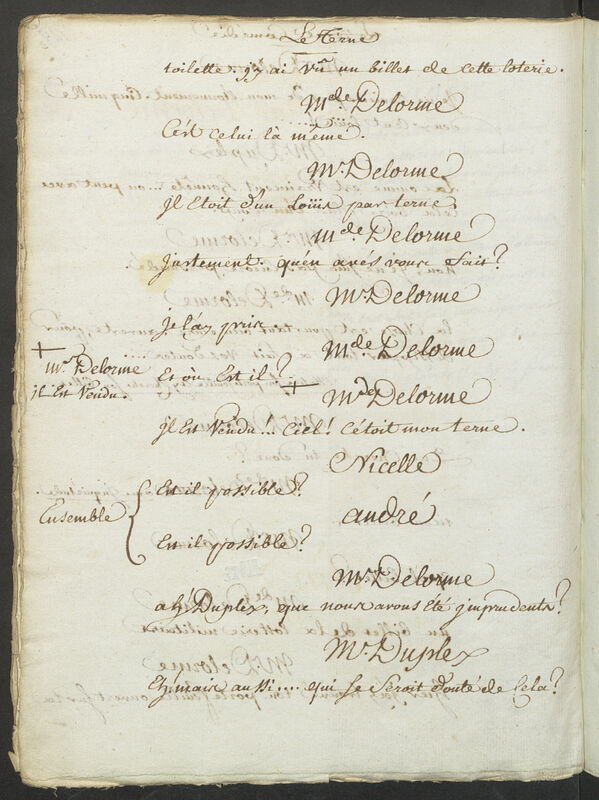 Le Terne
toilette. j'y ai vû un billet de cette loterie.
Mde. Delorme
C'est celui là même.
Mr. Delorme
Il Etoit d'un Loüis par terne.
Mde. Delorme
justement. qu'en avés vous fait?
Mr. Delorme
je l'ay pris.
Mde. Delorme
Et où Est il? +
+
Mr. Delorme
il Est Vendu.
Mde. Delorme
Il Est Vendu!! Ciel! C'étoit mon terne.
Nicelle
Est il possible?
Ensemble
andré
Est il possible?
Mr. Delorme
ah! Duplex, que nous avons Eté jmprudents?
Mr. Duplex
Eh! mais aussi.... qui se Seroit douté de Cela?